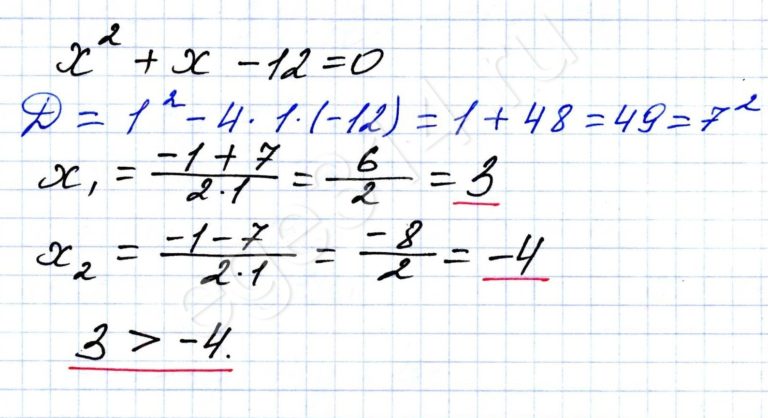 x² + x - 12 = 0
D = 1² - 4 · 1 · (-12) = 1 + 48 = 49 = 7²
x₁ = (-1 + 7)/(2·1) = 6/2 = 3
x₂ = (-1 - 7)/(2·1) = -8/2 = -4
3 > -4.
ege314.ru